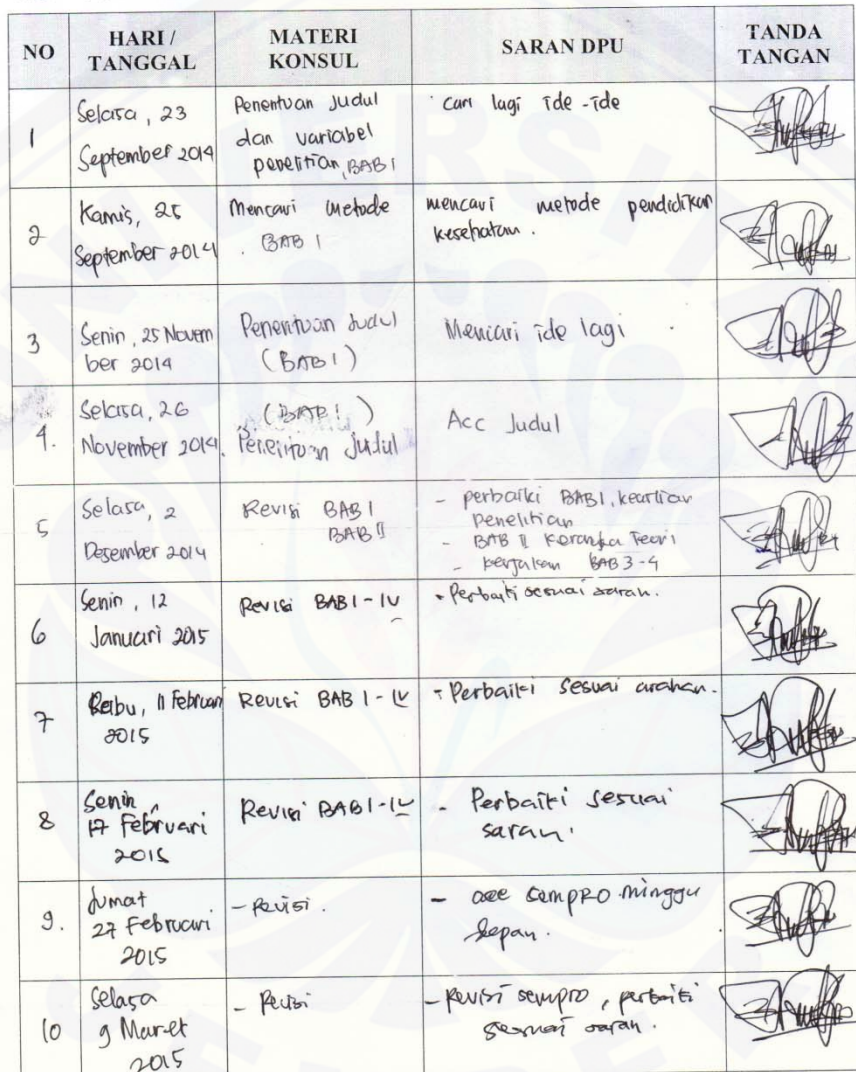 NO
HARI /
TANGGAL
MATERI
KONSUL
SARAN DPU
TANDA
TANGAN
1
Selasa, 23
September 2014
Penentuan Judul
dan variabel
penelitian, BAB I
cari lagi ide-ide
2
Kamis, 25
September 2014
Mencari metode
BAB I
mencari metode pendidikan
kesehatan.
3
Senin, 25 Novem
ber 2014
Penentuan Judul
(BAB I)
Mencari ide lagi
4.
Selasa, 26
November 2014.
(BAB I)
Penentuan Judul
Acc Judul
5
Selasa, 2
Desember 2014
Revisi BAB I
BAB II
- perbaiki BAB I, keaslian
Penelitian
- BAB II Kerangka Teori
- kerjakan BAB 3-4
6
Senin, 12
Januari 2015
Revisi BAB I - IV
- Perbaiki sesuai saran.
7
Rabu, 11 Februari
2015
Revisi BAB I - IV
- Perbaiki sesuai arahan.
8
Senin,
17 Februari
2015
Revisi BAB I - IV
- Perbaiki sesuai
saran.
9.
Jumat
27 Februari
2015
- Revisi.
- acc sempro minggu
depan.
10
Selasa
9 Maret
2015
- Revisi
- Revisi sempro, perbaiki
sesuai saran.